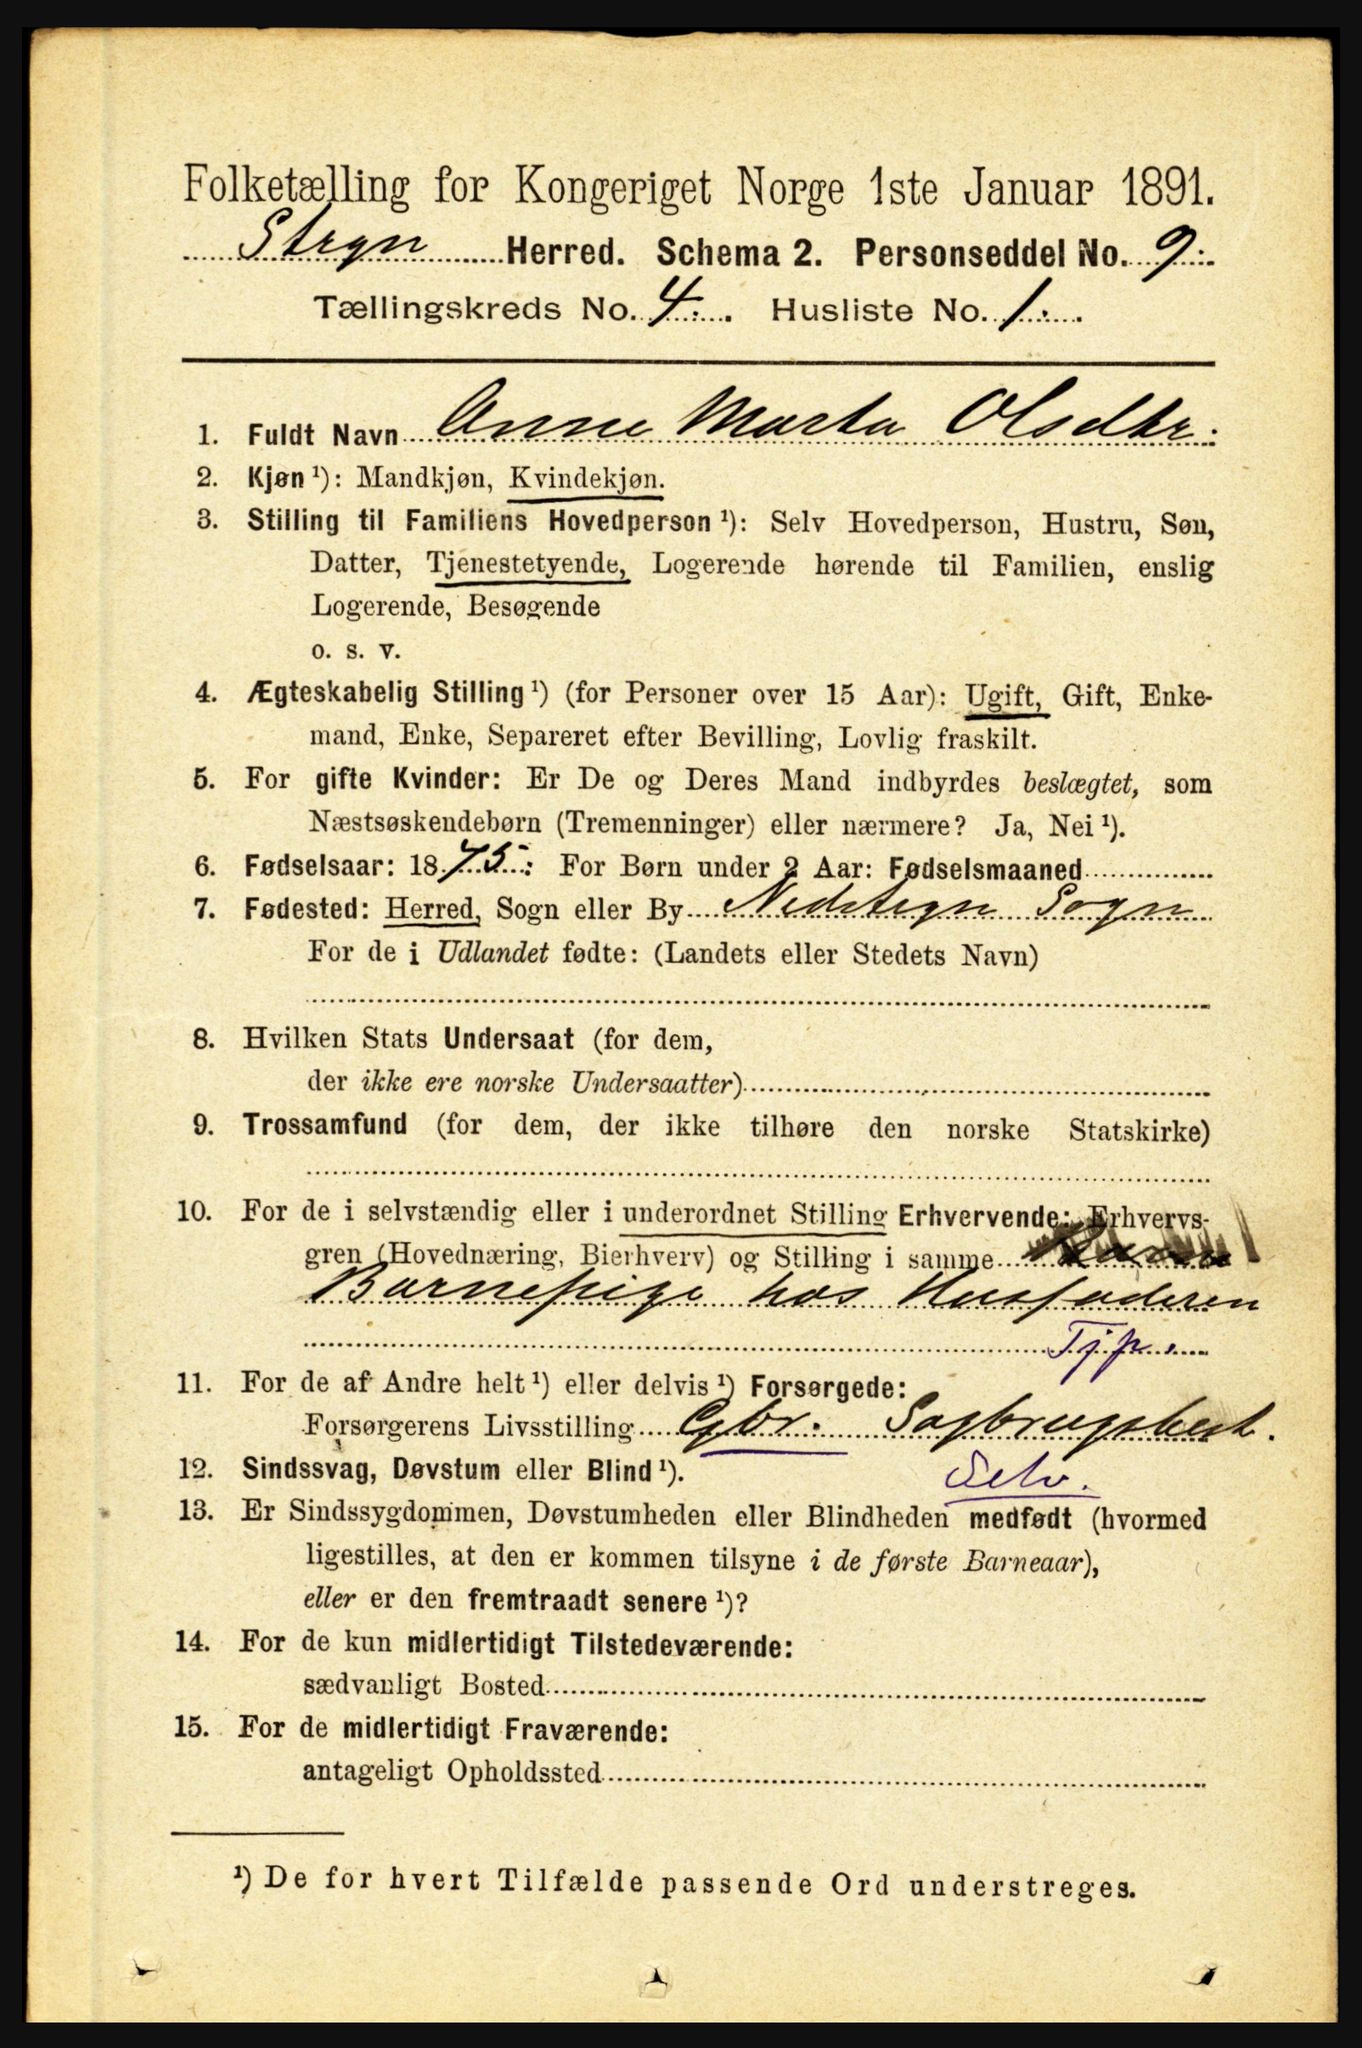 Folketælling for Kongeriget Norge 1ste Januar 1891.
Stryn Herred. Schema 2. Personseddel No. 9.
Tællingskreds No. 4. Husliste No. 1.
1. Fuldt Navn Anne Marta Olsdtr.
2. Kjøn ¹): Mandkjøn, Kvindekjøn.
3. Stilling til Familiens Hovedperson ¹): Selv Hovedperson, Hustru, Søn,
Datter, Tjenestetyende, Logerende hørende til Familien, enslig
Logerende, Besøgende
o. s. v.
4. Ægteskabelig Stilling ¹) (for Personer over 15 Aar): Ugift, Gift, Enke-
mand, Enke, Separeret efter Bevilling, Lovlig fraskilt.
5. For gifte Kvinder: Er De og Deres Mand indbyrdes beslægtet, som
Næstsøskendebørn (Tremenninger) eller nærmere? Ja, Nei ¹).
6. Fødselsaar: 1875: For Børn under 2 Aar: Fødselsmaaned
7. Fødested: Herred, Sogn eller By Nedstryn Sogn
For de i Udlandet fødte: (Landets eller Stedets Navn)
8. Hvilken Stats Undersaat (for dem,
der ikke ere norske Undersaatter)
9. Trossamfund (for dem, der ikke tilhøre den norske Statskirke)
10. For de i selvstændig eller i underordnet Stilling Erhvervende: Erhvervs-
gren (Hovednæring, Bierhverv) og Stilling i samme
Barnepige hos Husfaderen
Tjp.
11. For de af Andre helt ¹) eller delvis ¹) Forsørgede:
Forsørgerens Livsstilling Gbr. Sagbrugsbest.
12. Sindssvag, Døvstum eller Blind ¹). Selv.
13. Er Sindssygdommen, Døvstumheden eller Blindheden medfødt (hvormed
ligestilles, at den er kommen tilsyne i de første Barneaar),
eller er den fremtraadt senere ¹)?
14. For de kun midlertidigt Tilstedeværende:
sædvanligt Bosted
15. For de midlertidigt Fraværende:
antageligt Opholdssted
¹) De for hvert Tilfælde passende Ord understreges.